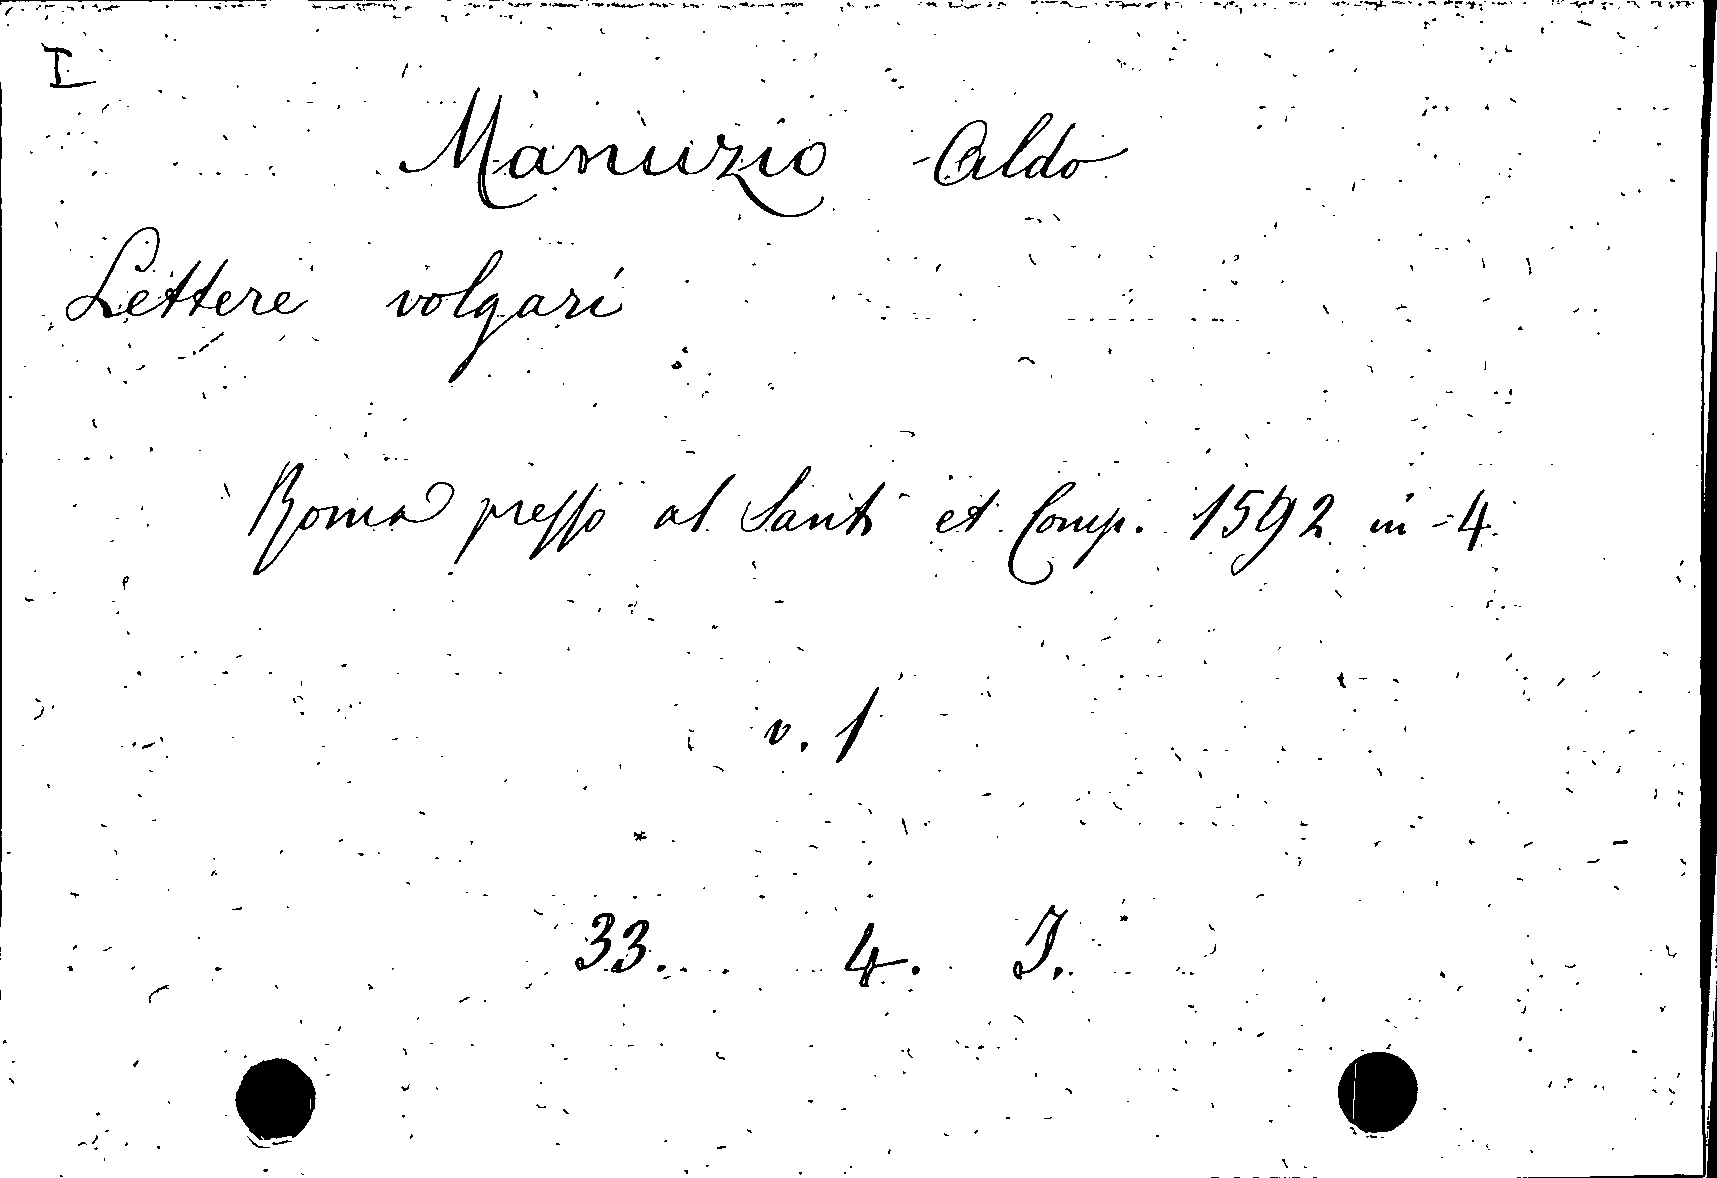 I
Manuzio Aldo
Lettere volgari
Roma presso al Santi et Comp. 1592 in-4.
v. 1
33. 4. I.